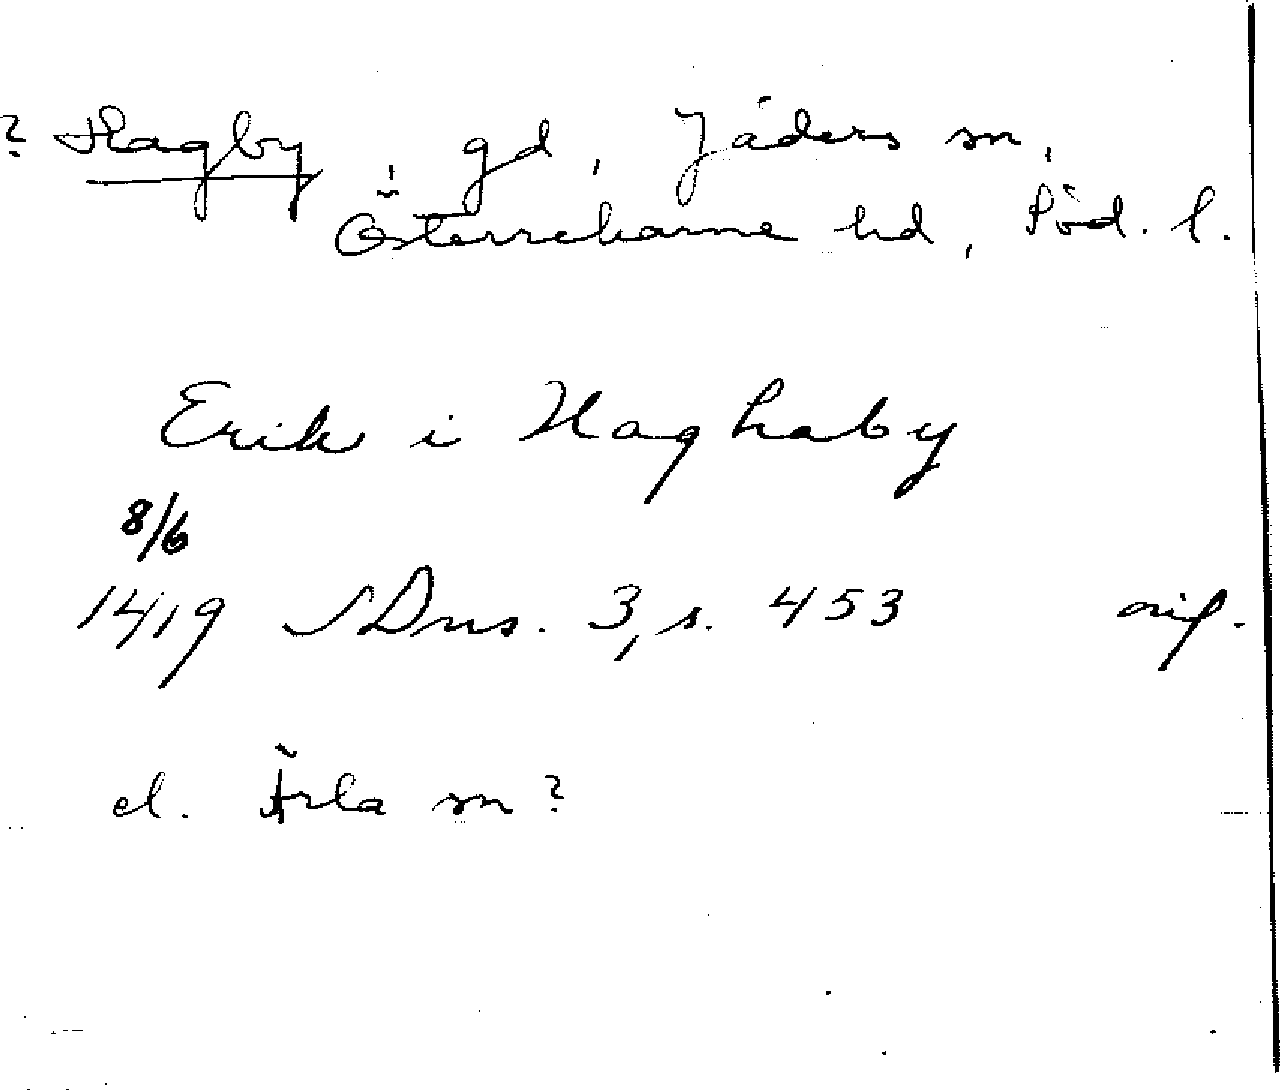 ? Hagby, gd, Jäders sn,
Österrekarne hd, Söd. l.
Erik i Haghaby
8/6
1419 SDns. 3, s. 453 orig.
el. Ärla sn?